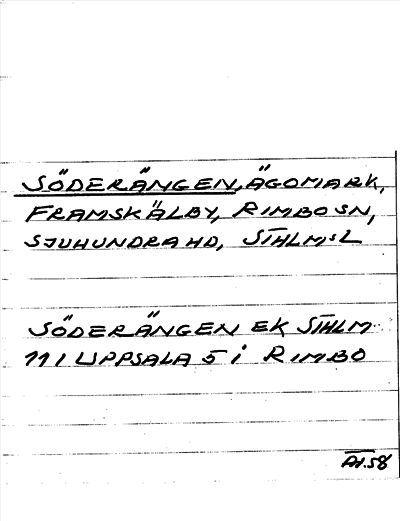 SÖDERÄNGEN, ÄGOMARK,
FRAMSKÄLBY, RIMBO SN,
SJUHUNDRA HD, STHLMS L
SÖDERÄNGEN EK STHLM
11 I UPPSALA 5 i RIMBO
AH.58